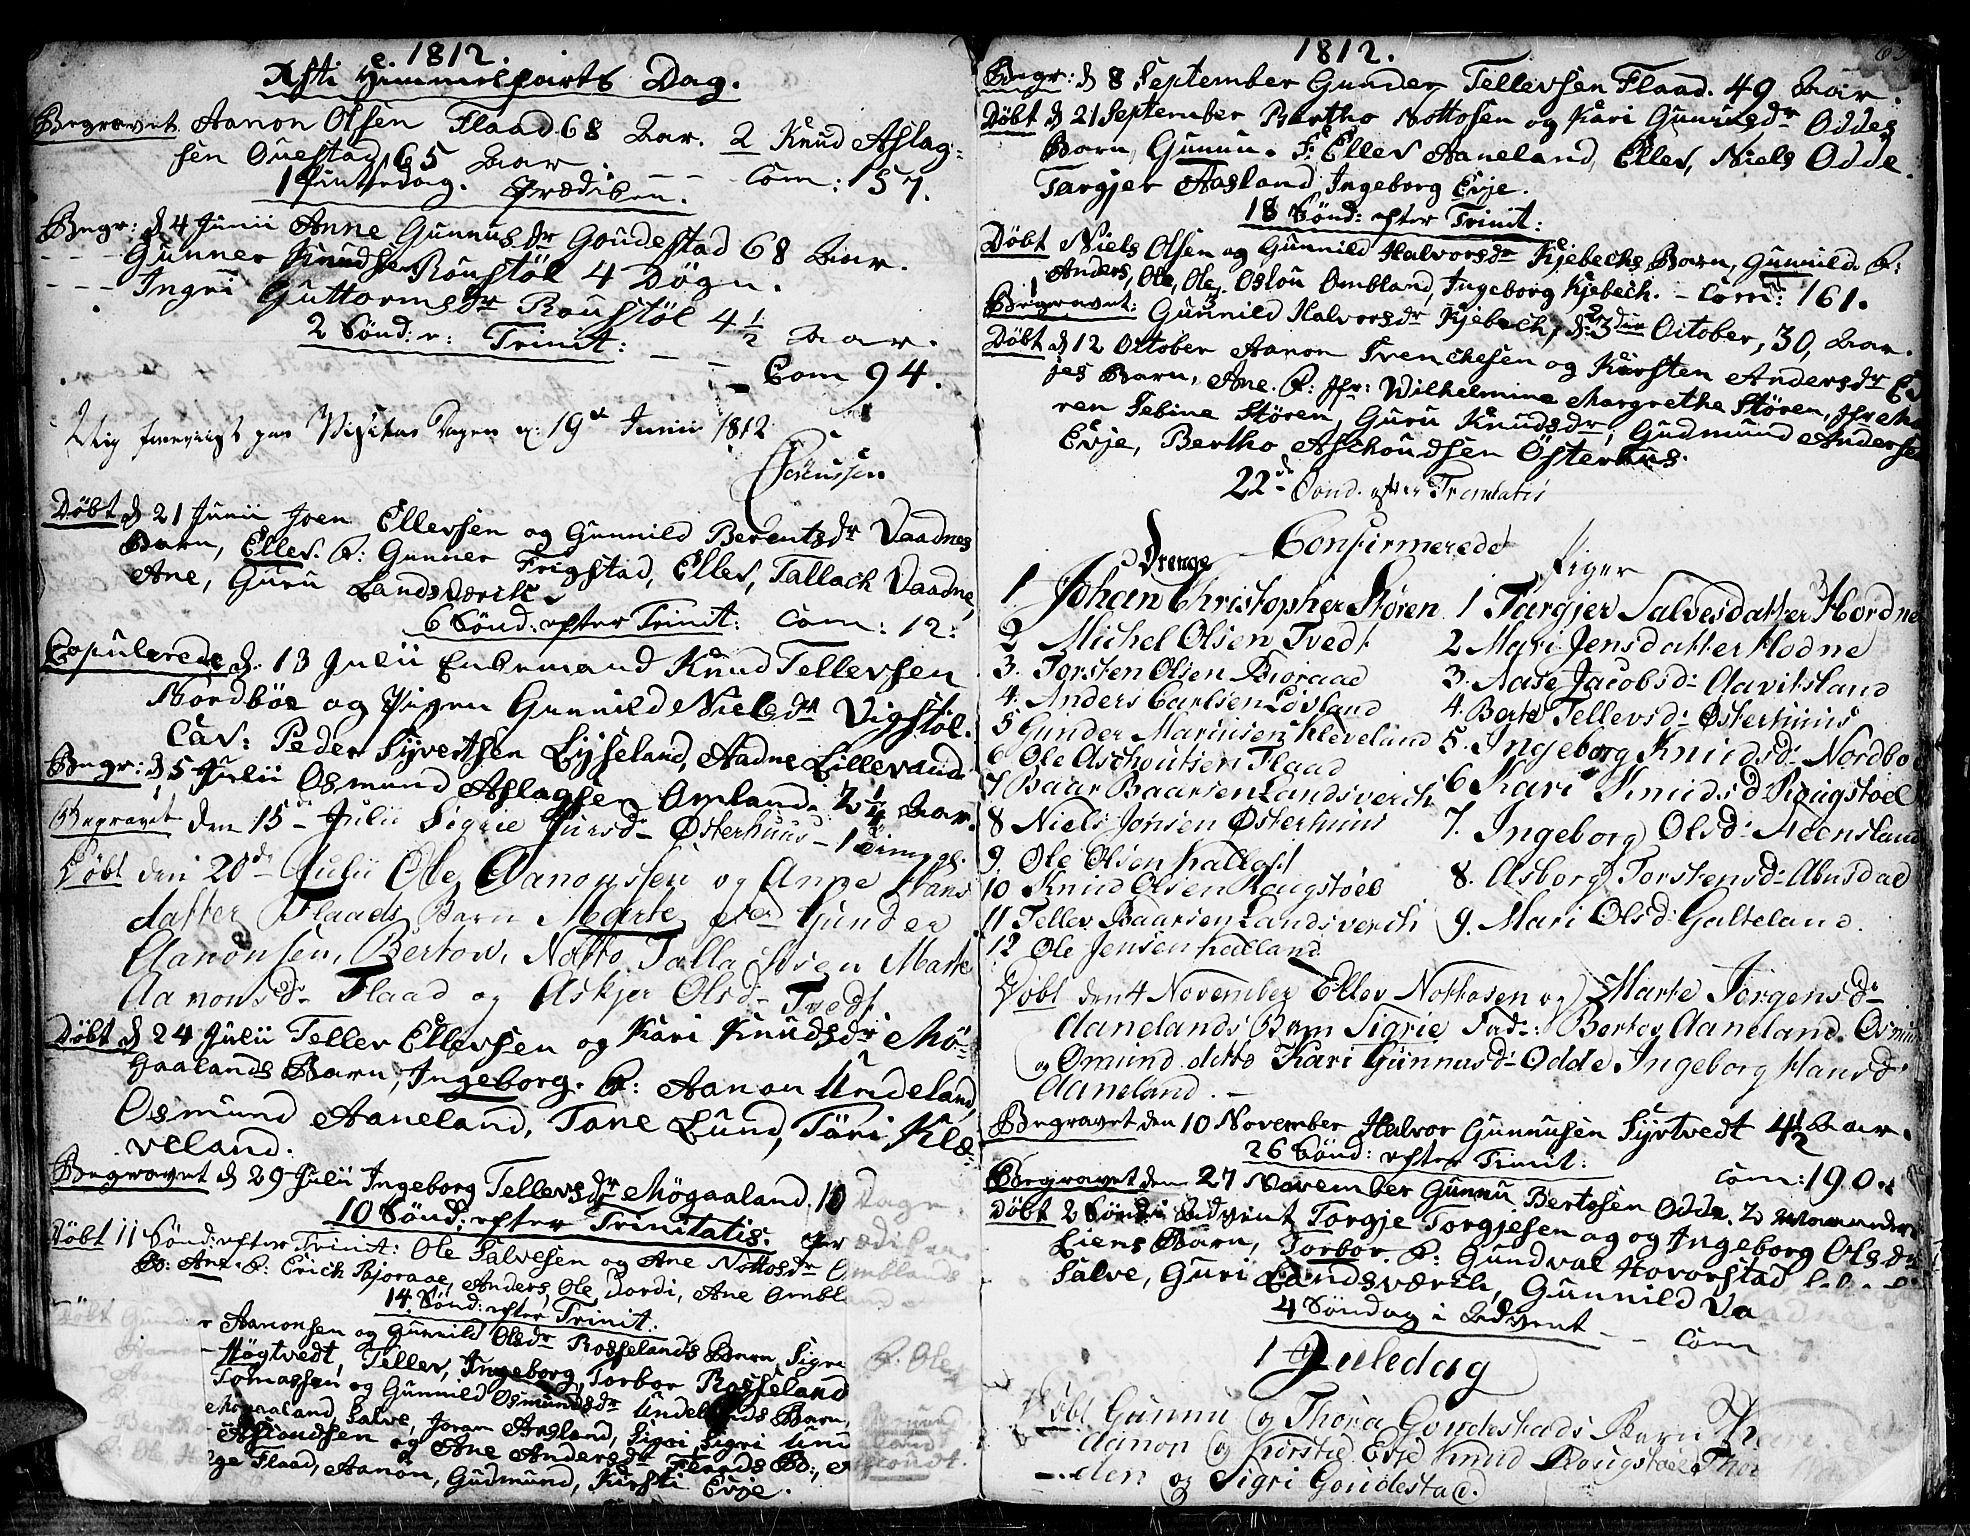 1812.
Xsti Himmelfarts Dag.
Begravet Aanon Olsen Flaad 68 Aar. 2 Knud Aslag-
sen Ouestad, 65 Aar. -- Com: 157.
1 Pintsedag. Prædiken.
Begr: d 4 Junii Anne Gunnusdr Goudestad 68 Aar.
--- Gunner Knudsen Roustöl 4 Dögn.
--- Ingri Guttormsdr Roustöl 4 1/2 Aar.
2 Sönd: e: Trinit: -- Com 94.
Mig foreviist paa Visitas Dagen d: 19de Junii 1812
Sörenssen
Döbt d 21 Junii Joen Ellevsen og Gunnild Berentsdr Vaadnes
Barn, Ellev. F: Gunner Frigstad, Ellev, Tallach Vaadne,
Ane, Guru Landsværch.
6 Sönd: efter Trinit: Com: 12:
Copulerede d. 13 Julii Enkemand Knud Tellevsen
Nordböe og Pigen Gunnild Nielsdr Vigstöl.
Cav: Peder Syvertsen Lysseland, Aadne Lillevand
Begr: d. 5 Julii Osmund Aslagsen Omland. 2 1/4 Aar.
Begravet den 15 Julii Sigrie Jursd- Østerhuus - 1
Döbt den 20de Julii Ole Aanonssen og Anne Hans
datter Flaads Barn Marte Fad Gunder
Aanonsen, Bertow, Notto Tallachsen Marte
Aanonsd- Flaad og Askjer Olsd- Tvedt
Döbt d 24 Julii Tellev Ellevsen og Kari Knudsdr Mö-
gaalands Barn, Ingeborg. F: Aanon Undeland,
Osmund Aaneland, Tone Lund, Töri Klæ-
veland.
Begravet d 29 Julii Ingeborg Tellevsdr Mögaaland. 10 Dage.
10 Sönd: efter Trinitatis: Prædiken.
Döbt 11 Sönd: efter Trinit: Ole Salvesen og Ane Nottosdr Omblands
B: Ane. F: Erich Bjoraae, Anders, Ole, Dordi, Ane Ombland
14 Sönd: efter Trinit:
Aanonsen og Gunnild Olsdr Rosselands Barn, Sigri F: Ole
Högtvedt, Tellev, Ingeborg, Torbor Rosseland
Tomassen og Gunnild Osmundsdr Undelands Barn,
Mögaaland, Salve, Joram Aasland, Sigri, Sigri Und
Aslondsen og Ane Andersdr Flaads B:,
Flaad, Aanon, Gudmund, Kirsti Evje.
1812.
Begr: d 8 September Gunder Tellevsen Flaad. 49 Aar.
Döbt d 21 September Bertho Nottosen og Kari Gunnusdr Oddes
Barn, Gunnu. F. Ellev Aaneland, Ellev, Niels Odde.
Targjer Aasland, Ingeborg Evje.
18 Sönd: efter Trinit:
Döbt Niels Olsen og Gunnild Halvorsdr Kjebechs Barn, Gunild. F:
Anders, Ole, Ole, Oslou Ombland, Ingeborg Kjebech. - Com: 161.
Begravet: Gunnild Halvorsdr Kjebech, d: 3die October, 30, Aar.
Döbt d 12 October Aanon Svenchesen og Kirsten Andersdr Ev
jes Barn, Ane. F: Jfr: Wilhelmine Margrethe Stören, Jfr Ma
ren Sebine Stören, Guru Knudsdr, Gudmund Andersen
Evje, Bertho Aschoudsen Österhus.
22de Sönd. efter Trinitatis
Confirmerede
Drenge
1 Johan Christopher Stören
2 Michel Olsen Tvedt
3. Torsten Olsen Bioraae
4. Anders Carlsen Løvland
5 Gunder Marinsen Kleveland
6 Ole Aschoutsen Flaad
7 Baar Baarsen Landsverch
8 Niels Jonsen Østerhuus
9. Ole Olsen Kallost
10 Knud Olsen Rougstoel
11 Tellev Baarsen Landsverch
12 Ole Jensen Kalland
Piger
1 Targjer Salvesdatter Hordne
2 Mari Jensdatter Hodne
3. Aase Jacobsd- Aavitsland
4. Berte Tellevsd- Østerhuus
5. Ingeborg Knudsd- Nordbo
6 Kari Knudsd Rougstoel
7. Ingeborg Olsd- Meensland
8. Asborg Torstensd- Abusdal
9. Mari Olsd: Galteland.
Döbt den 4 November Ellev Nottosen og Marte Jørgensd-
Aanelands Barn Sigrie Fad-: Bertov Aaneland. Osmun
og Omund ditto Kari Gunnusd- Odde Ingeborg Hansd
Aaneland. -
Begravet den 10 November Halvor Gunnusen Syrtvedt 4 1/2 Aar.
26 Sönd: efter Trinit: Com: 190.
Begravet den 27 November Gunnu Bertosen Odde. 2 Maaneder
Döbt 2 Sönd: i Advent Torgje Torgjesen og og Ingeborg Olsdr
Liens Barn, Torbor. F: Gundval Hovorstad
Salve, Guri Landsværch, Gunnild Va
4 Söndag i Advent -- Com
1 Juledag
Döbt Gunnu og Thora Goudestads Barn
Aanon og Kirsted Evje Knud Rougstoel Thor
den og Sigri Goudestad.